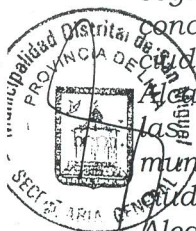 Municipalidad Distrital de San Miguel
PROVINCIA DE LIMA
SECRETARIA GENERAL
conc
ciud
Alca
las
mun
ciud
Alca